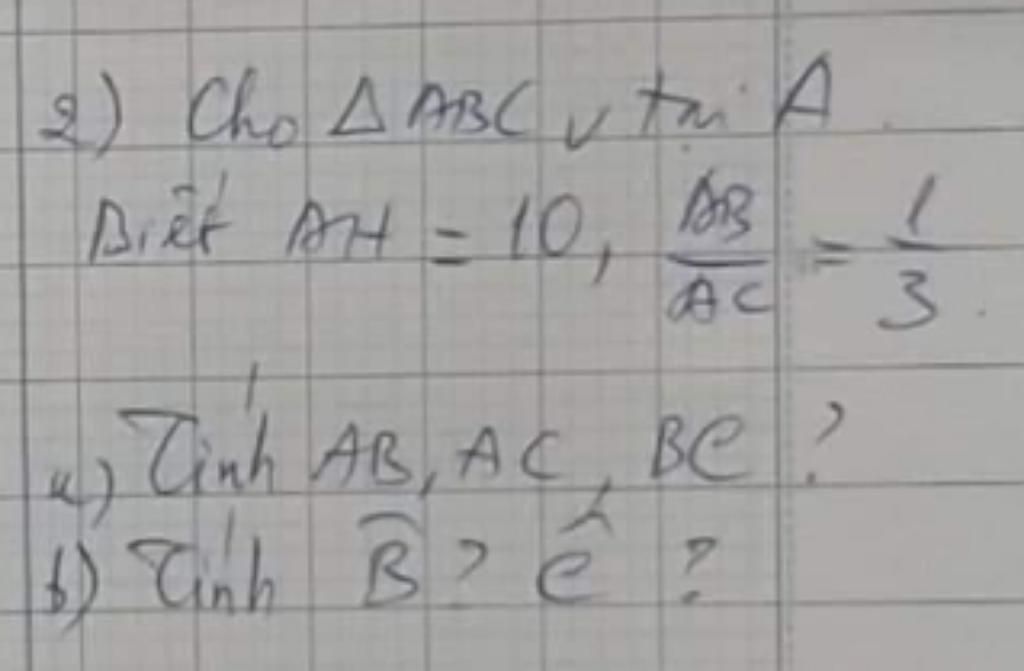 2) Cho Δ ABC v tại A.
Biết AH = 10, AB/AC = 1/3.
a) Tính AB, AC, BC ?
b) Tính B̂ ? Ĉ ?